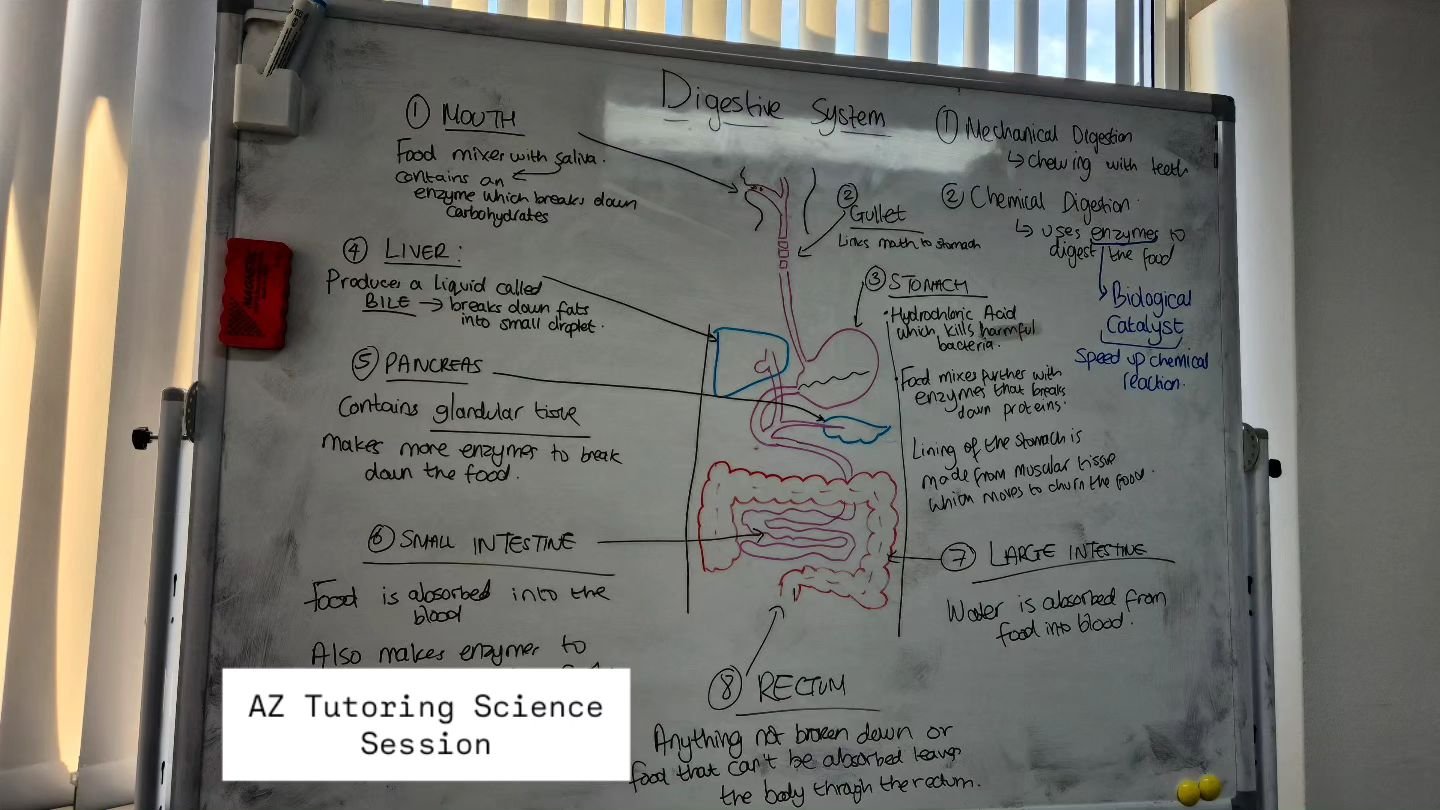 Digestive System
① MOUTH
Food mixes with saliva.
contains an
enzyme which breaks down
Carbohydrates
④ LIVER:
Produces a liquid called
BILE → breaks down fats
into small droplet.
⑤ PANCREAS
Contains glandular tissue
Makes more enzymes to break
down the food.
⑥ SMALL INTESTINE
Food is absorbed into the
blood
Also makes enzymes to
② Gullet
Links mouth to stomach
③ STOMACH
• Hydrochloric Acid
which kills harmful
bacteria.
• Food mixes further with
enzymes that breaks
down proteins.
Lining of the stomach is
made from muscular tissue
which moves to churn the food.
⑦ LARGE INTESTINE
Water is absorbed from
food into blood.
⑧ RECTUM
Anything not broken down or
food that can't be absorbed leaves
the body through the rectum.
① Mechanical Digestion
↳ chewing with teeth
② Chemical Digestion.
↳ uses enzymes to
digest the food
Biological
Catalyst
Speed up chemical
reaction.
AZ Tutoring Science
Session